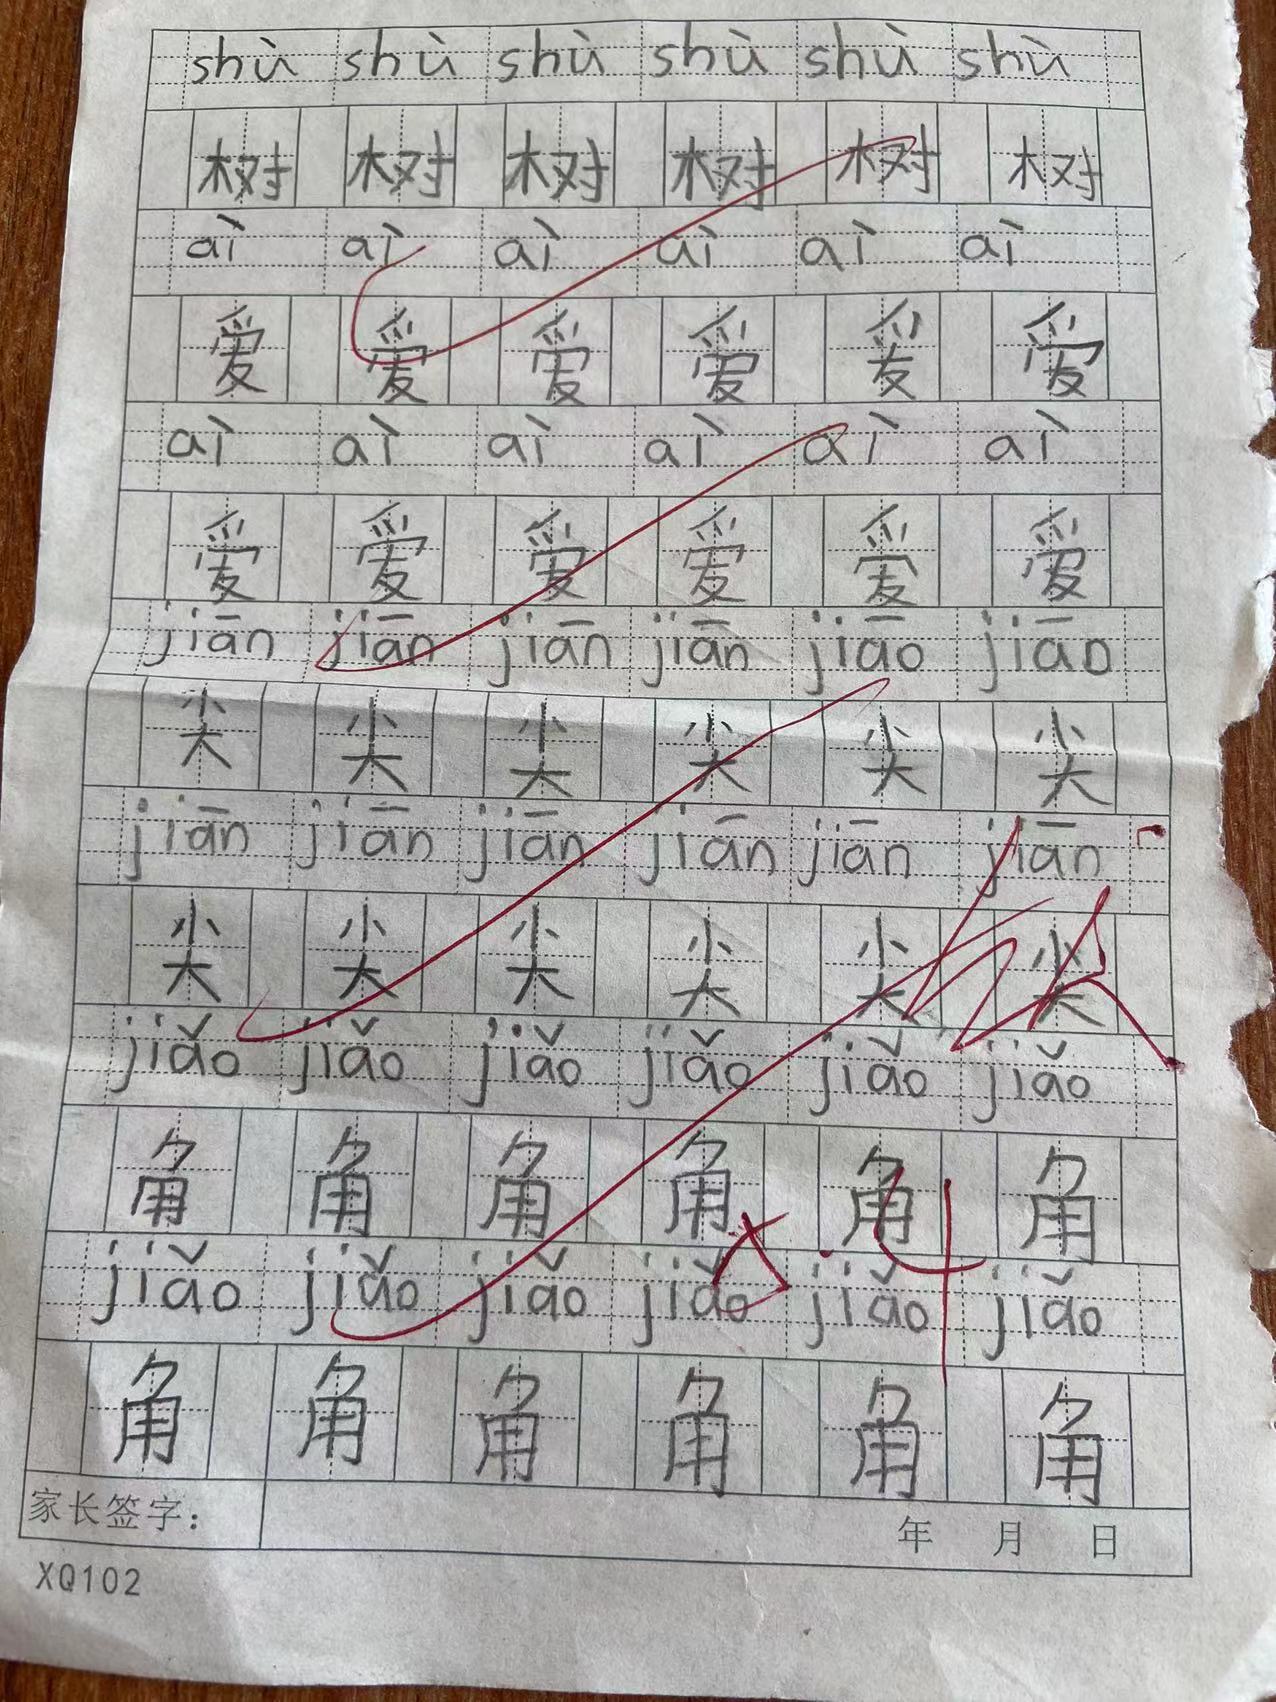 shù shù shù shù shù shù
树 树 树 树 树 树
aì aì aì aì aì aì
爱 爱 爱 爱 爱 爱
aì aì aì aì aì aì
爱 爱 爱 爱 爱 爱
jiān jiān jiān jiān jiāo jiāo
尖 尖 尖 尖 尖 尖
jiān jiān jiān jiān jiān jiān
尖 尖 尖 尖 尖 尖
jiǎo jiǎo jiǎo jiǎo jiǎo jiǎo
角 角 角 角 角 角
jiǎo jiǎo jiǎo jiǎo jiǎo jiǎo
角 角 角 角 角 角
家长签字：
年 月 日
XQ102